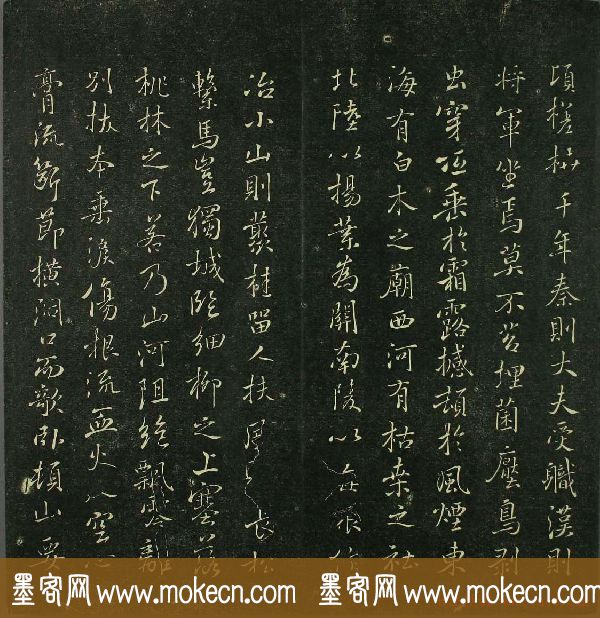 頃槎枿千年秦則大夫受職漢則
將軍坐焉莫不苔埋菌壓鳥剥
虫穿低垂於霜露撼頓於風煙東
海有白木之廟西河有枯桒之社
北陸以楊葉為關南陵以梅根作
冶小山則叢桂留人扶風長松
繫馬豈獨城臨細柳之上塞落
桃林之下若乃山河阻絶飄零離
別拔本垂淚傷根流血火入空心
膏流斷節橫洞口而欹卧頓山要
墨客网 www.mokecn.com 墨客网 www.mokecn.com